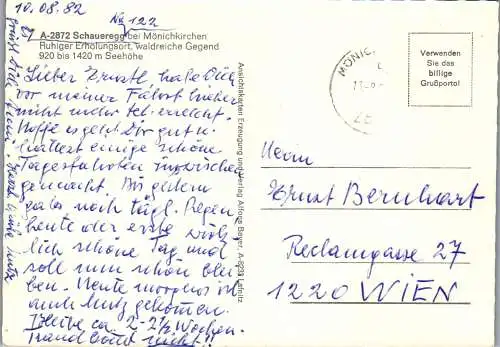 10.08.82
No 122
A-2872 Schaueregg bei Mönichkirchen
Ruhiger Erholungsort, waldreiche Gegend
920 bis 1420 m Seehöhe
Lieber Ernstl habe Dich
vor meiner Fahrt hieher
nicht mehr tel. erreicht.
Hoffe es geht Dir gut u.
hattest einige schöne
Tagesfahrten inzwischen
gemacht. Bis gestern
gab's noch tägl. Regen,
heute der erste wirk-
lich schöne Tag und
soll nun schön blei-
ben. Heute morgens ist
auch gekommen.
Bleibe ca. 2-2½ Wochen.
nicht!!
grüßt Dich
Ansichtskarten Erzeugung und Verlag Alfons Bayer, A-8293
MÖNIC
Verwenden
Sie das
billige
Grußporto!
Herrn
Ernst Bernhart
Reclamgasse 27
1220 WIEN